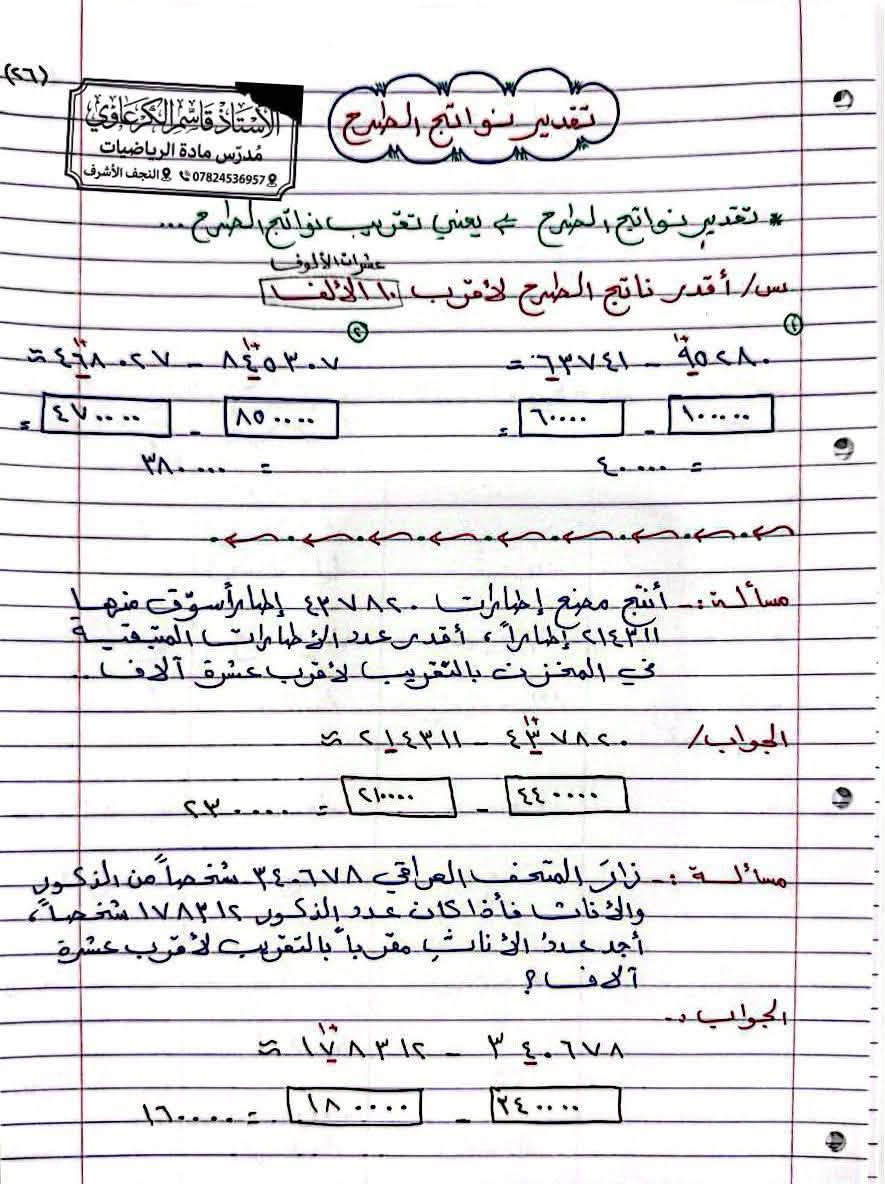 (٢٦)
الأستاذ قاسم الكرعاوي
مُدرّس مادة الرياضيات
07824536957 النجف الأشرف
تقدير نواتج الطرح
* تقدير نواتج الطرح ⇐ يعني تقريب نواتج الطرح ...
عشرات الألوف
س/ أقدر ناتج الطرح لأقرب ١٠ الألف
١ ٩٥٢٨٠ - ٦٣٧٤١ =
١+
١٠٠٠٠٠ - ٦٠٠٠٠ =
= ٤٠٠٠٠
٢ ٨٤٥٣٠٧ - ٤٦٨٠٢٧ ≈
١+ ١+
٨٥٠٠٠٠ - ٤٧٠٠٠٠ =
= ٣٨٠٠٠٠
مسألة :- أنتج مصنع إطارات ٤٣٧٨٢٠ إطاراً سوّق منها
٢١٤٣١١ إطاراً، أقدر عدد الأطارات المتبقية
في المخزن بالتقريب لأقرب عشرة آلاف ..
الجواب/ ٤٣٧٨٢٠ - ٢١٤٣١١ ≈
١+
٤٤٠٠٠٠ - ٢١٠٠٠٠ = ٢٣٠٠٠٠
مسألة :- زارَ المتحف العراقي ٣٤٠٦٧٨ شخصاً من الذكور
والأناث فأذا كان عدد الذكور ١٧٨٣١٢ شخصاً،
أجد عددُ الأناثِ مقرباً بالتقريب لأقرب عشرة
آلاف ؟
الجواب :-
٣٤٠٦٧٨ - ١٧٨٣١٢ ≈
١+
٣٤٠٠٠٠ - ١٨٠٠٠٠ = ١٦٠٠٠٠